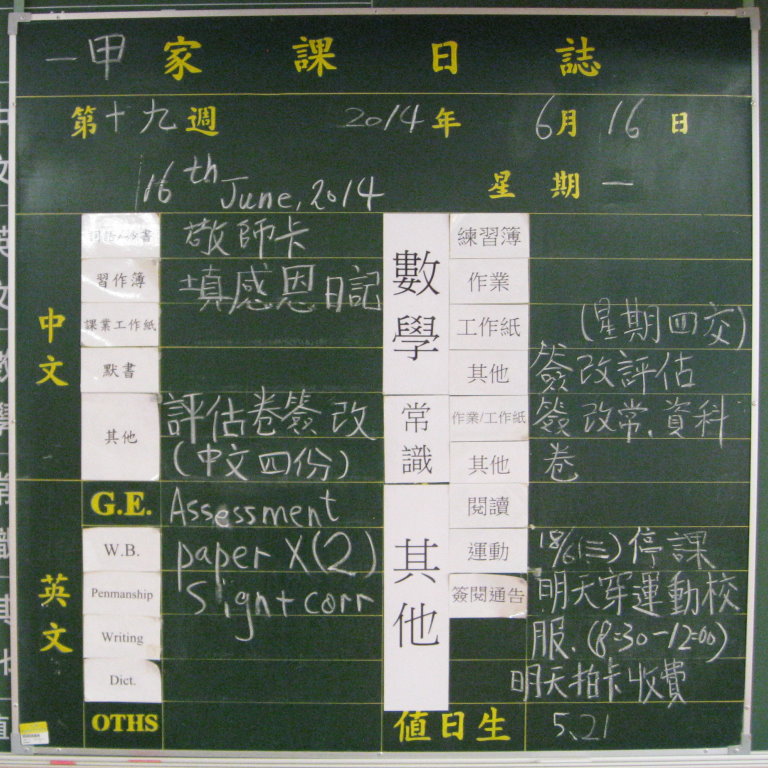 一甲 家 課 日 誌
第十九週 2014年 6月 16 日
16th June, 2014 星 期 一
中文
敬師卡
習作簿 填感恩日記
課業工作紙
默書
其他 評估卷簽改
(中文四份)
英文
G.E. Assessment
W.B. paper X(2)
Penmanship Sign + corr
Writing
Dict.
OTHS
數學
練習簿
作業
工作紙 (星期四交)
其他 簽改評估
常識
作業/工作紙 簽改常.資料
其他 卷
其他
閱讀
運動 18/6(三)停課
簽閱通告 明天穿運動校
服.(8:30-12:00)
明天拍卡收費
值日生 5、21